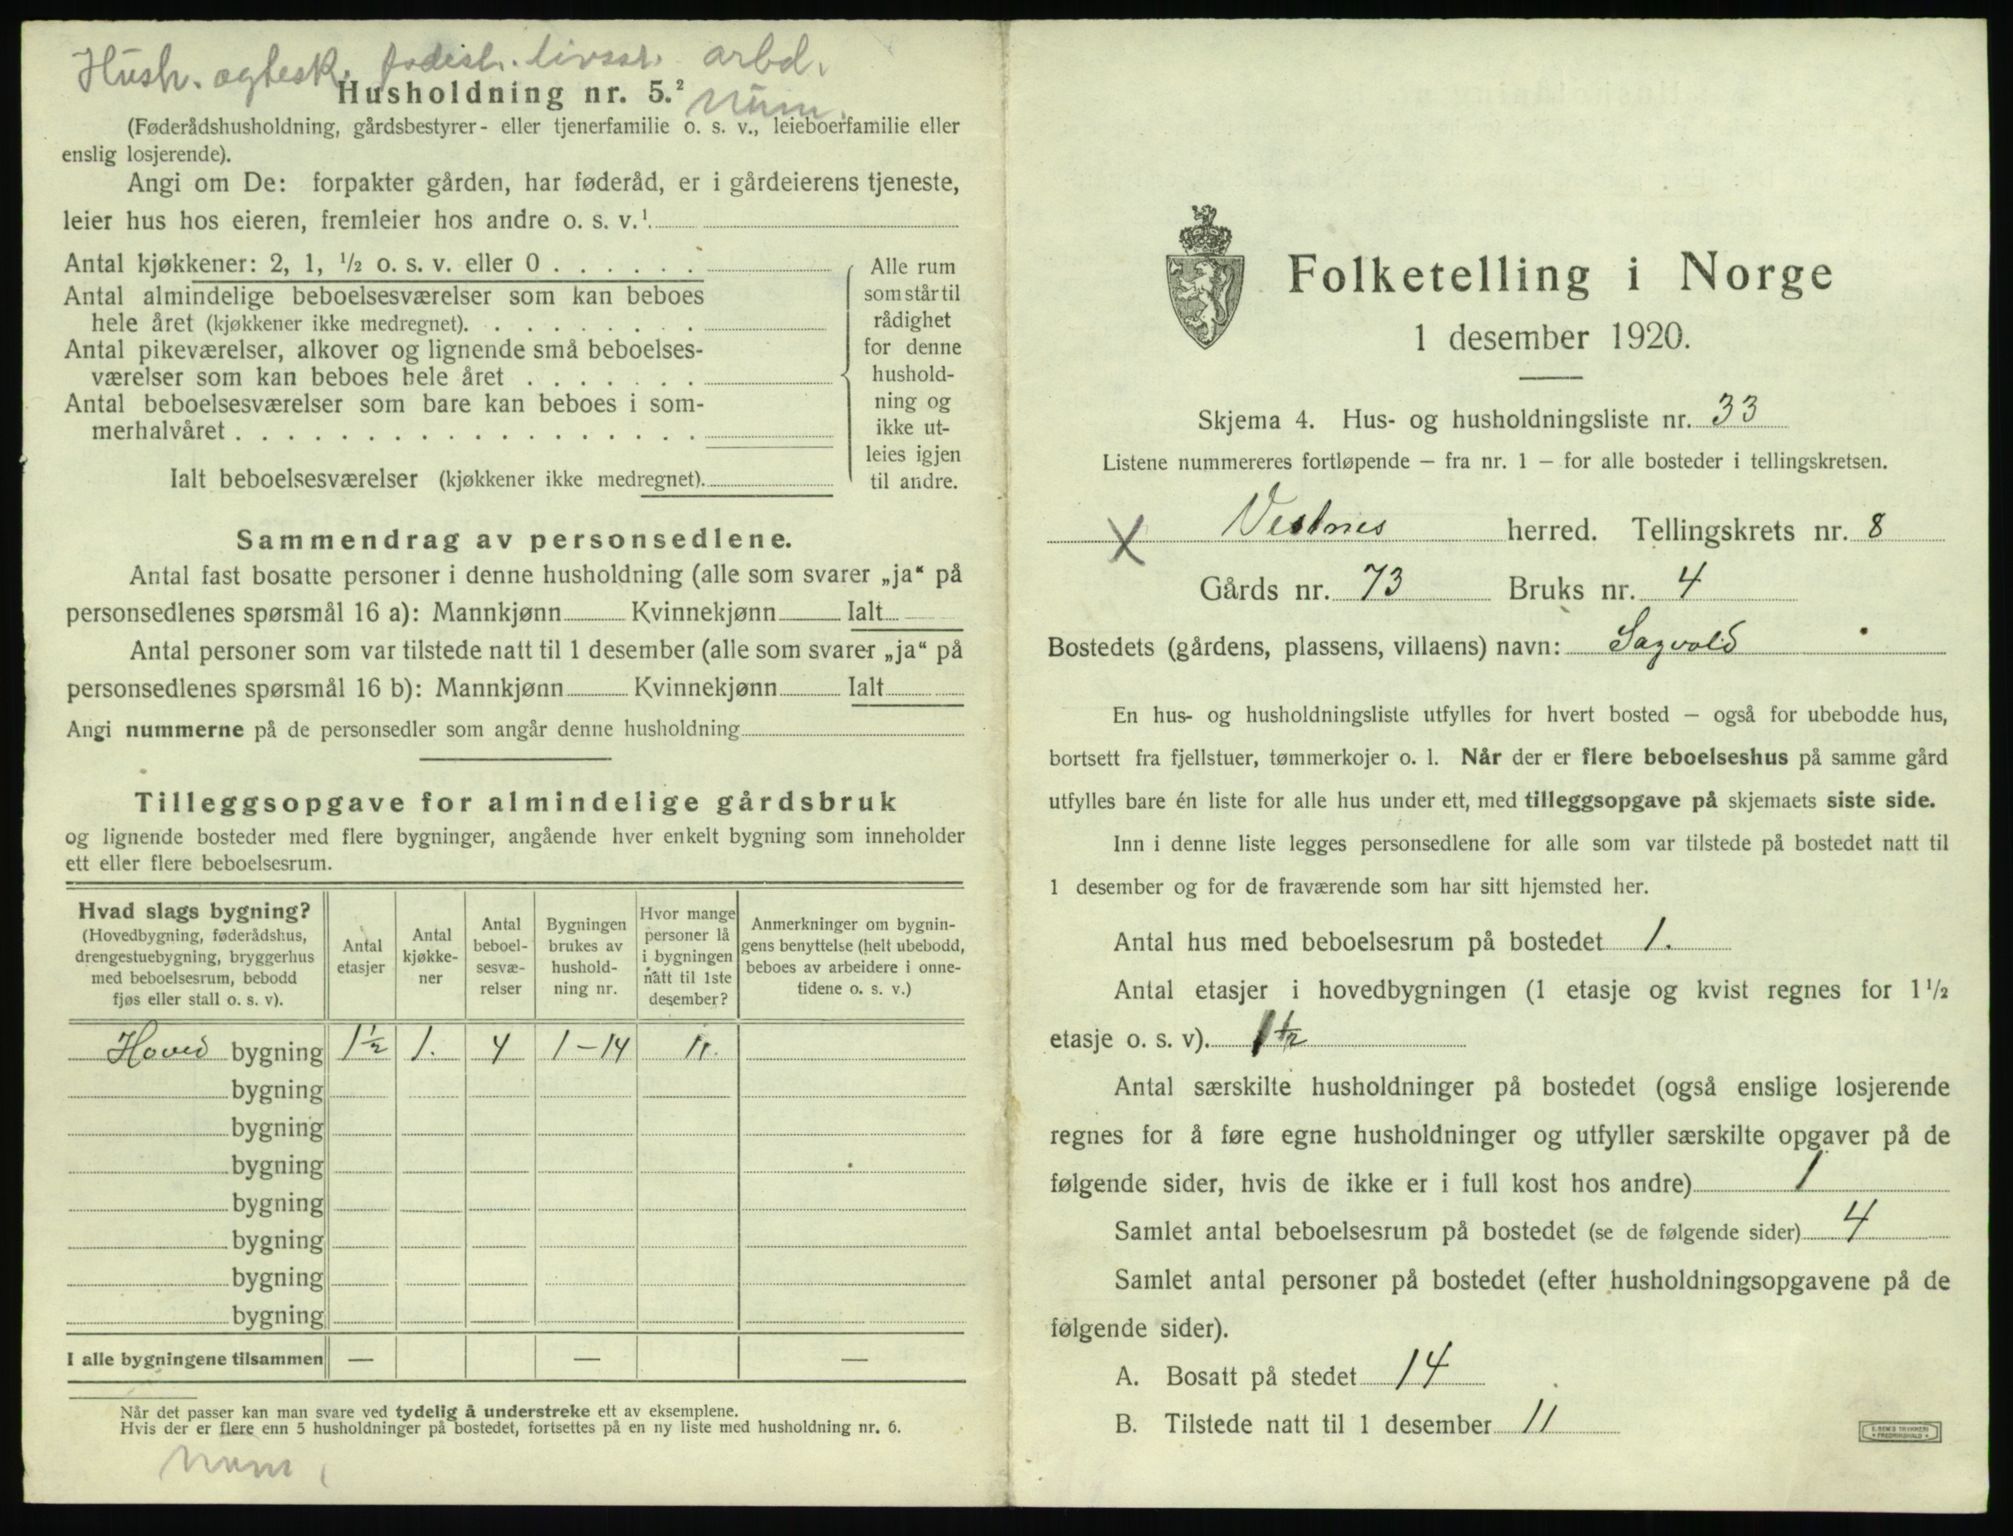 Hush. egtesk. fødest. livsst. arbd.
Husholdning nr. 5.²
Num.
(Føderådshusholdning, gårdsbestyrer- eller tjenerfamilie o. s. v., leieboerfamilie eller
enslig losjerende).
Angi om De: forpakter gården, har føderåd, er i gårdeierens tjeneste,
leier hus hos eieren, fremleier hos andre o. s. v.¹
Antal kjøkkener: 2, 1, ½ o. s. v. eller 0 . . . . . .
Antal almindelige beboelsesværelser som kan beboes
hele året (kjøkkener ikke medregnet). . . . . . . . .
Antal pikeværelser, alkover og lignende små beboelses-
værelser som kan beboes hele året . . . . . . .
Antal beboelsesværelser som bare kan beboes i som-
merhalvåret . . . . . . . . . . . . . . . . . .
Ialt beboelsesværelser (kjøkkener ikke medregnet).
Alle rum
som står til
rådighet
for denne
hushold-
ning og
ikke ut-
leies igjen
til andre.
Sammendrag av personsedlene.
Antal fast bosatte personer i denne husholdning (alle som svarer „ja“ på
personsedlenes spørsmål 16 a): Mannkjønn Kvinnekjønn Ialt
Antal personer som var tilstede natt til 1 desember (alle som svarer „ja“ på
personsedlenes spørsmål 16 b): Mannkjønn Kvinnekjønn Ialt
Angi nummerne på de personsedler som angår denne husholdning
Tilleggsopgave for almindelige gårdsbruk
og lignende bosteder med flere bygninger, angående hver enkelt bygning som inneholder
ett eller flere beboelsesrum.
Hvad slags bygning?
(Hovedbygning, føderådshus,
drengestuebygning, bryggerhus
med beboelsesrum, bebodd
fjøs eller stall o. s. v).
Antal
etasjer
Antal
kjøkke-
ner
Antal
beboel-
sesvæ-
relser
Bygningen
brukes av
hushold-
ning nr.
Hvor mange
personer lå
i bygningen
natt til 1ste
desember?
Anmerkninger om bygnin-
gens benyttelse (helt ubebodd,
beboes av arbeidere i onne-
tidene o. s. v.)
Hoved bygning 1½ 1. 4 1-14 11.
bygning
bygning
bygning
bygning
bygning
bygning
bygning
I alle bygningene tilsammen — — —
Når det passer kan man svare ved tydelig å understreke ett av eksemplene.
Hvis der er flere enn 5 husholdninger på bostedet, fortsettes på en ny liste med husholdning nr. 6.
Num.
Folketelling i Norge
1 desember 1920.
Skjema 4. Hus- og husholdningsliste nr. 33
Listene nummereres fortløpende – fra nr. 1 – for alle bosteder i tellingskretsen.
X Vestnes herred. Tellingskrets nr. 8
Gårds nr. 73 Bruks nr. 4
Bostedets (gårdens, plassens, villaens) navn: Sagvold
En hus- og husholdningsliste utfylles for hvert bosted – også for ubebodde hus,
bortsett fra fjellstuer, tømmerkojer o. l. Når der er flere beboelseshus på samme gård
utfylles bare én liste for alle hus under ett, med tilleggsopgave på skjemaets siste side.
Inn i denne liste legges personsedlene for alle som var tilstede på bostedet natt til
1 desember og for de fraværende som har sitt hjemsted her.
Antal hus med beboelsesrum på bostedet 1.
Antal etasjer i hovedbygningen (1 etasje og kvist regnes for 1½
etasje o. s. v). 1½
Antal særskilte husholdninger på bostedet (også enslige losjerende
regnes for å føre egne husholdninger og utfyller særskilte opgaver på de
følgende sider, hvis de ikke er i full kost hos andre) 1
Samlet antal beboelsesrum på bostedet (se de følgende sider) 4
Samlet antal personer på bostedet (efter husholdningsopgavene på de
følgende sider).
A. Bosatt på stedet 14
B. Tilstede natt til 1 desember 11